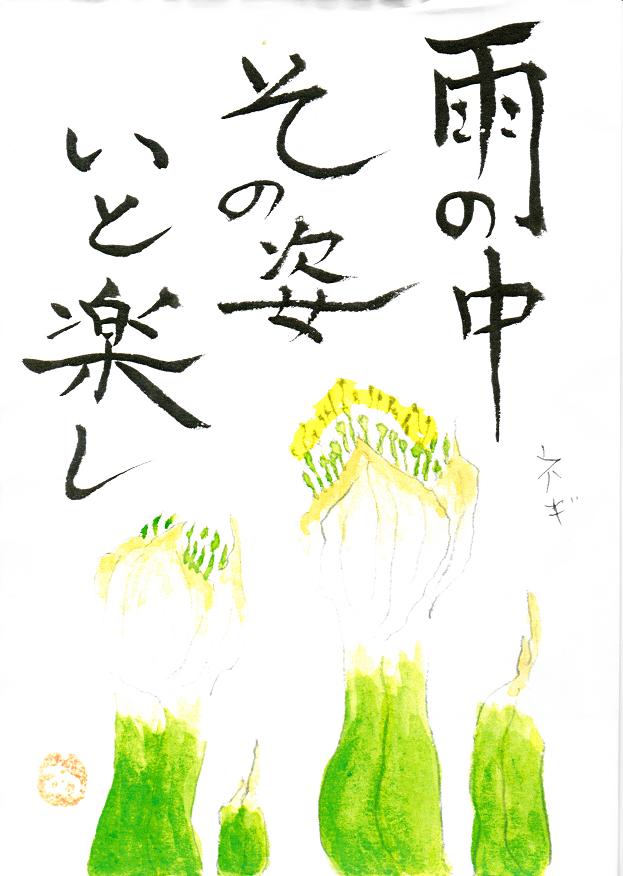 雨の中
その姿
いと楽し
ネギ